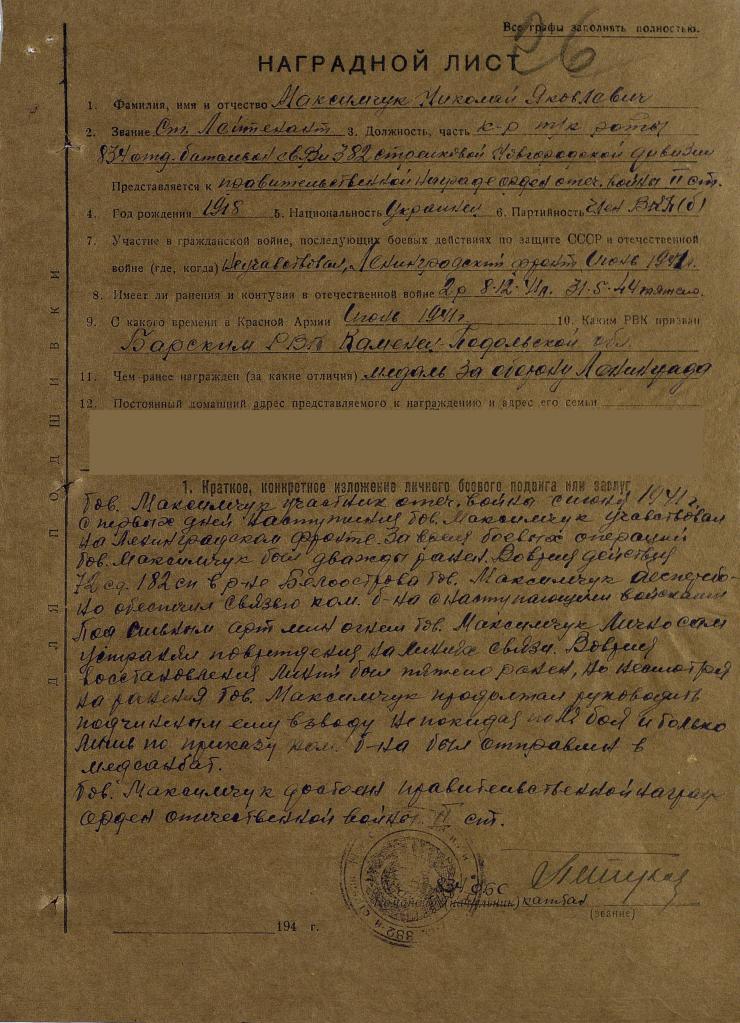 Все графы заполнять полностью.
26
НАГРАДНОЙ ЛИСТ
1. Фамилия, имя и отчество Максимчук Николай Яковлевич
2. Звание Ст. Лейтенант 3. Должность, часть к-р т/к роты
834 отд. баталион связи 382 стрелковой Новгородской дивизии
Представляется к правительственной награде орден отеч. войны II ст.
4. Год рождения 1918 5. Национальность Украинец 6. Партийность член ВКП(б)
7. Участие в гражданской войне, последующих боевых действиях по защите СССР и отечественной
войне (где, когда) Неучавствовал, Ленинградский фронт Июль 1941 г.
8. Имеет ли ранения и контузии в отечественной войне 2 р 8.12.41г. 31.5.44 тяжело.
9. С какого времени в Красной Армии Июль 1941 г 10. Каким РВК призван
Барским РВК Каменец-Подольской обл.
11. Чем ранее награжден (за какие отличия) медаль за оборону Ленинграда
12. Постоянный домашний адрес представляемого к награждению и адрес его семьи
1. Краткое, конкретное изложение личного боевого подвига или заслуг
Тов. Максимчук участник отеч. войны с июля 1941 г.
с первых дней наступления тов. Максимчук учавствовал
на Ленинградском фронте. За время боевых операций
тов. Максимчук был дважды ранен. Вовремя действия
72 сд. 182 сп в р-не Белоострова тов. Максимчук бесперебо-
но обеспечил связью ком. б-на с наступающими войсками
Под сильным арт мин огнем тов. Максимчук лично сам
устранял повреждения на линиях связи. Вовремя
восстановления линий был тяжело ранен, но несмотря
на ранения тов. Максимчук продолжал руководить
подчиненным ему взводу не покидая поля боя и только
лишь по приказу ком. б-на был отправлен в
медсанбат.
Тов. Максимчук достоен правительственной наград
Орден отечественной войны II ст.
834 ОБС
Командир (начальник) капитан
(звание)
194 г.
ДЛЯ ПОДШИВКИ